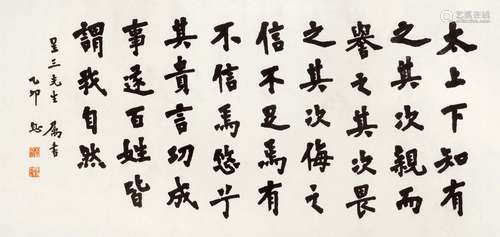 太上下知有
之其次親而
譽之其次畏
之其次侮之
信不足焉有
不信焉悠乎
其貴言功成
事遂百姓皆
謂我自然
星三先生 属書
乙卯